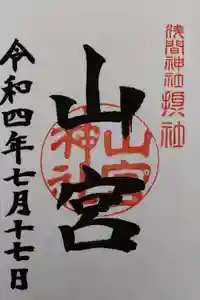 浅間神社摂社
山宮
山宮神社
令和四年七月十七日